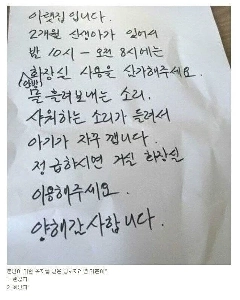 아랫집입니다.
2개월 신생아가 있어서
밤 10시 - 오전 8시에는
안방
화장실 사용을 삼가해주세요.
물 흘려보내는 소리.
샤워하는 소리가 들려서
아기가 자꾸 깹니다.
정 급하시면 거실 화장실
이용해주세요.
양해감사합니다.